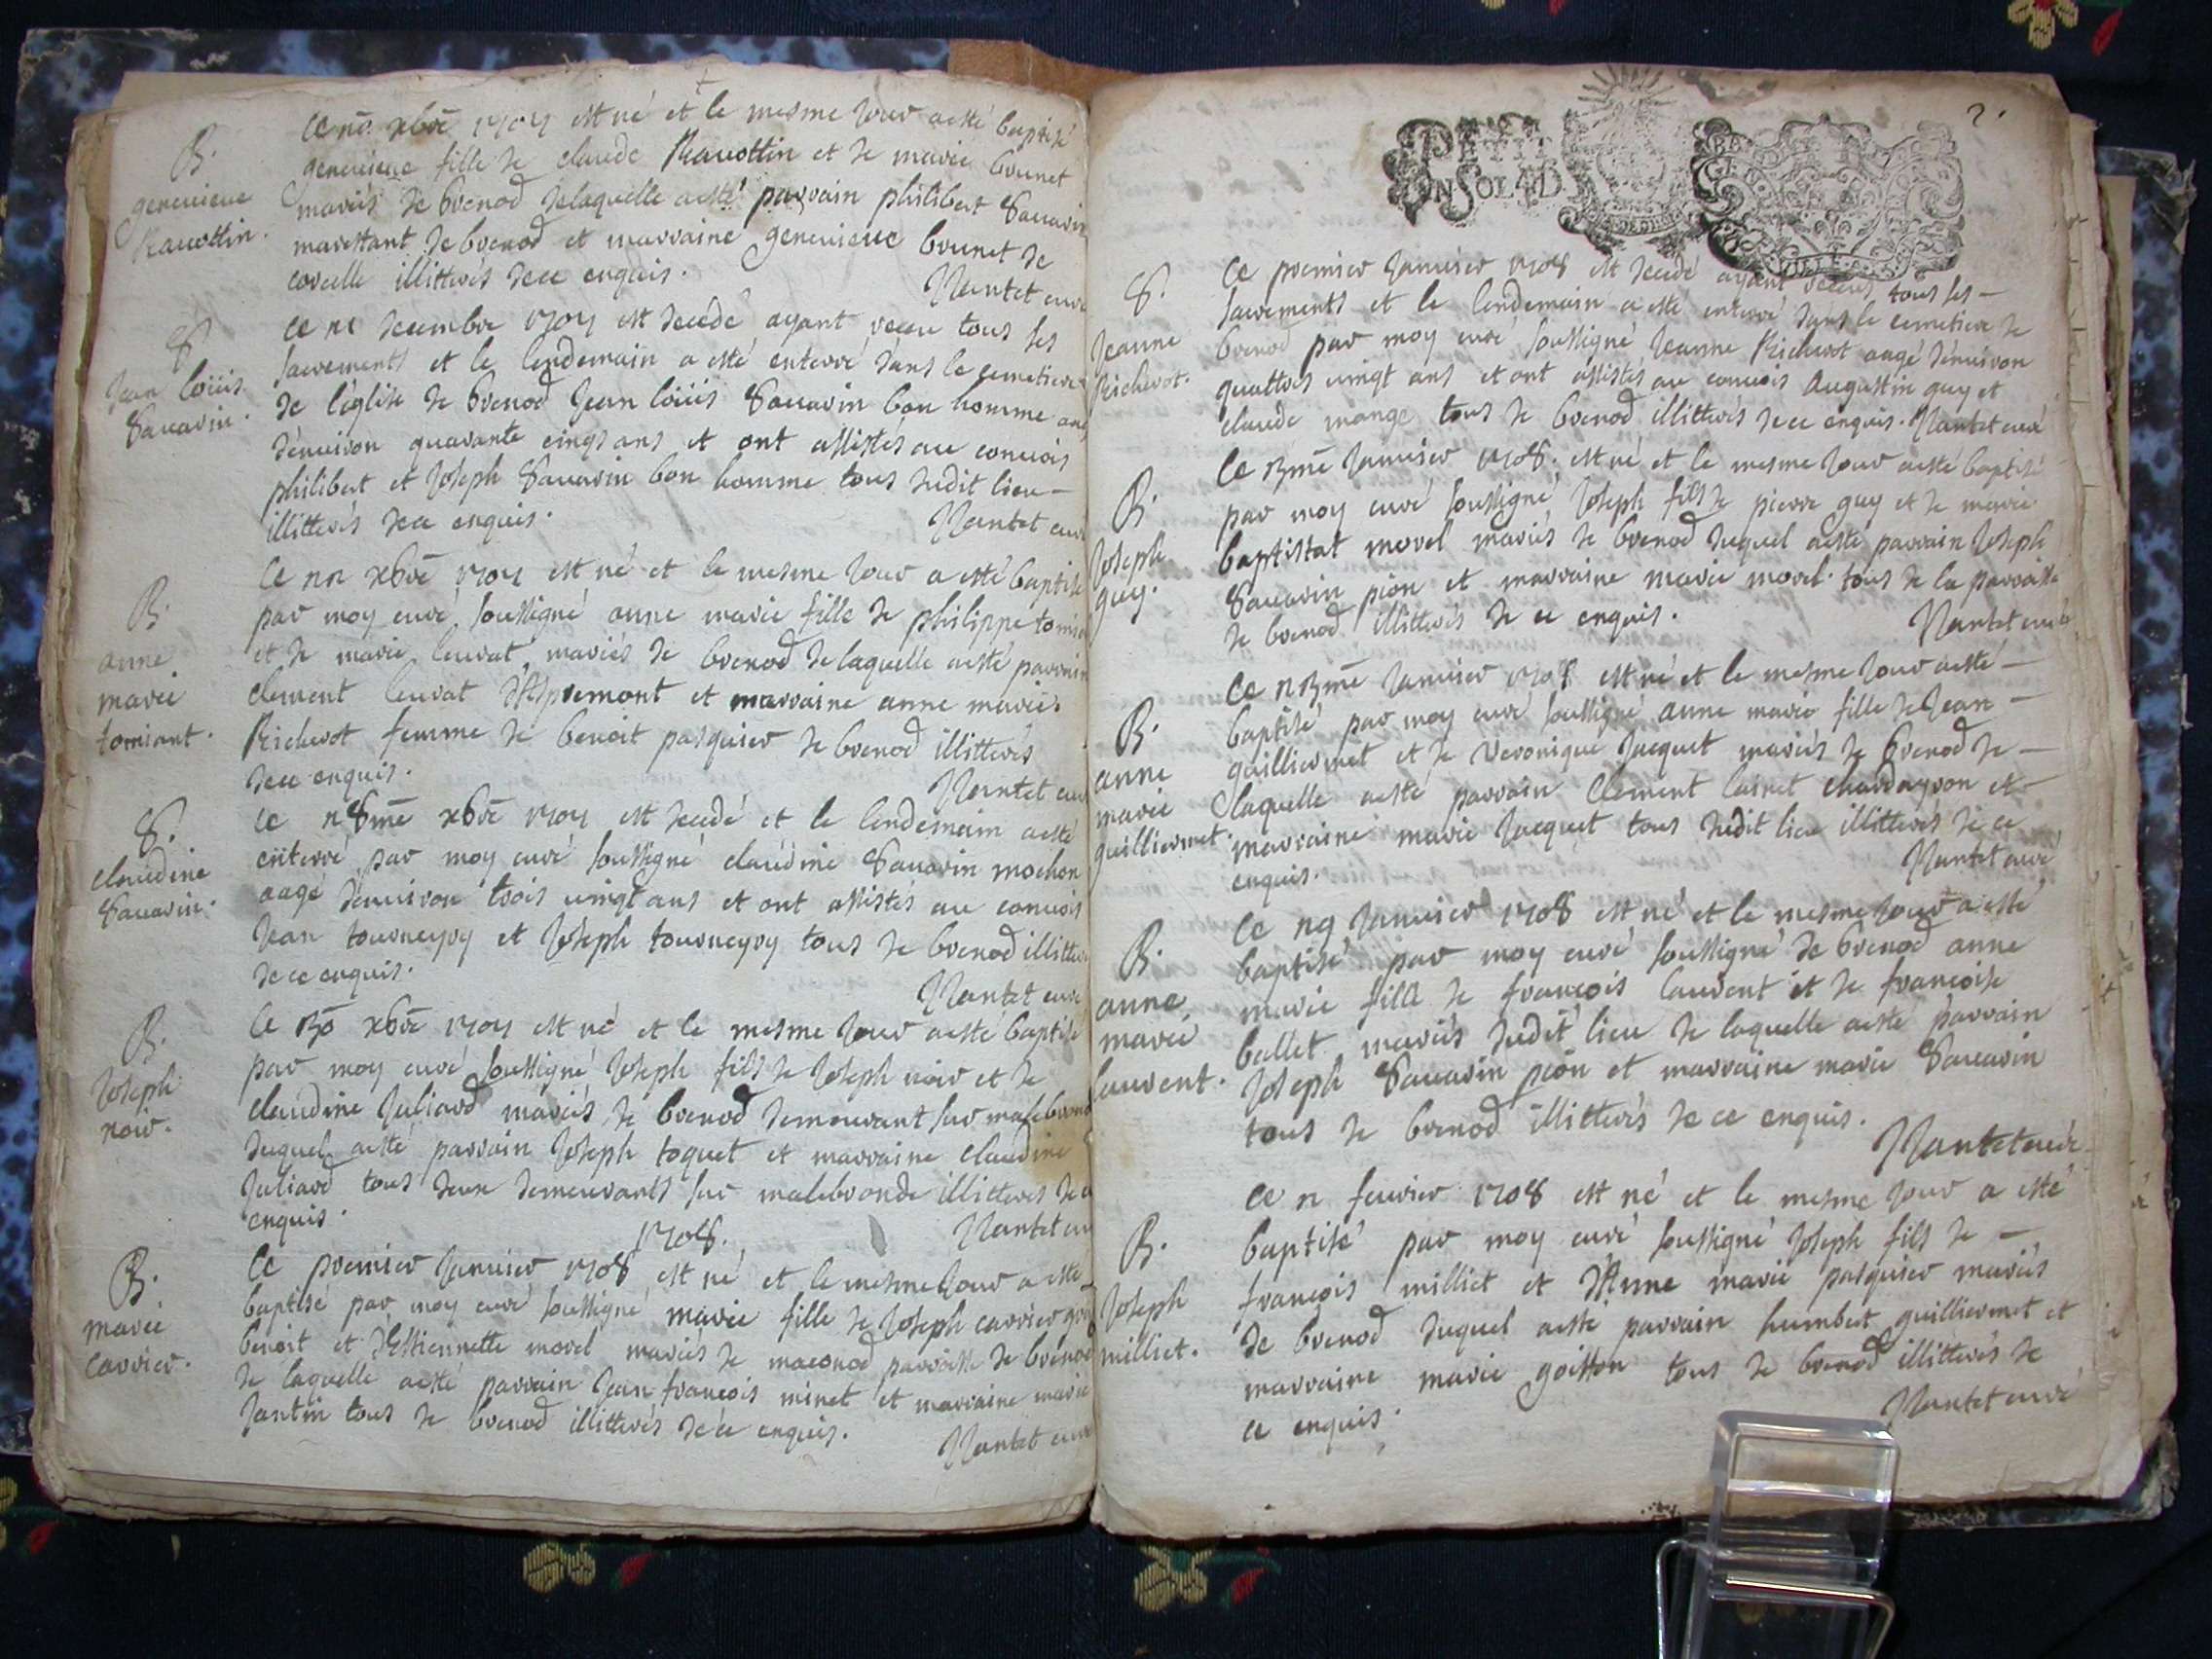 B.
genevieve
Ravottin.
Ce xbre 1707 est né et le mesme Jour a esté baptisé
genevieve fille de claude Ravottin et de marie brunet
mariés de brenod de laquelle a esté parrain philibert Savarin
de brenod et marraine genevieve brunet de
corcelle illitterés de ce enquis.
Nantet curé
S
Jean loüis
Savarin.
Ce decembre 1707 est decedé ayant receu tous ses
sacrements et le lendemain a esté enterré dans le cemetiere
de l'église de brenod Jean loüis Savarin bon homme
d'environ quarante cinq ans et ont assistés au convois
philibert et Joseph Savarin bon homme tous dudit lieu
illitterés de ce enquis.
Nantet curé
B.
anne
marie
tomiant.
Ce xbre 1707 est né et le mesme Jour a esté baptisé
par moy curé soussigné anne marie fille de philippe
et de marie levrat mariés de brenod de laquelle a esté parrain
clement levrat d'Apremont et marraine anne marie
Richerot femme de benoit pasquier de brenod illitterés
de ce enquis.
Nantet curé
S.
claudine
Savarin.
Ce 18me xbre 1707 est decedé et le lendemain a esté
enterré par moy curé soussigné claudine Savarin mochon
aagé d'environ trois vingt ans et ont assistés au convois
Jean tourneyry et Joseph tourneyry tous de brenod
de ce enquis.
Nantet curé
B.
Joseph
noir.
Ce 30 xbre 1707 est né et le mesme Jour a esté baptisé
par moy curé soussigné Joseph fils de Joseph noir et de
claudine Juliard mariés de brenod demourant sur malebronde
duquel a esté parrain Joseph toquet et marraine claudine
Juliard tous deux demeurants sur malebronde illitterés de ce
enquis.
Nantet curé
1708.
B.
marie
carrier.
Ce premier Janvier 1708 est né et le mesme Jour a esté
baptisé par moy curé soussigné marie fille de Joseph carrier
benoit et d'Estiennette morel mariés de maconod parroisse de brenod
de laquelle a esté parrain Jean francois minet et marraine marie
Jantin tous de brenod illitterés de ce enquis.
Nantet curé
2.
PETIT
UN SOL 4 D
S.
Jeanne
Richerot.
Ce premier Janvier 1708 est decedé ayant receus tous ses
sacrements et le lendemain a esté enterré dans le cemetiere de
brenod par moy curé soussigné Jeanne Richerot aagé d'environ
quattres vingt ans et ont assistés au convois Augustin guy et
claude monge tous de brenod illitterés de ce enquis. Nantet curé
B.
Joseph
guy.
Ce 3me Janvier 1708. est né et le mesme Jour a esté baptisé
par moy curé soussigné Joseph fils de pierre guy et de marie
baptistat morel mariés de brenod duquel a esté parrain Joseph
Savarin pion et marraine marie morel. tous de la parroisse
de brenod illitterés de ce enquis.
Nantet curé
B.
anne
marie
guilliermet.
Ce 13me Janvier 1708 est né et le mesme Jour a esté
baptisé par moy curé soussigné anne marie fille de Jean
guilliermet et de Veronique Jacquet mariés de brenod de
laquelle a esté parrain Clement et
marraine marie Jacquet tous dudit lieu illitterés de ce
enquis.
Nantet curé
B.
anne
marie
laurent.
Ce 19 Janvier 1708 est né et le mesme Jour a esté
baptisé par moy curé soussigné de brenod anne
marie fille de françois laurent et de françoise
ballet mariés dudit lieu de laquelle a esté parrain
Joseph Savarin pion et marraine marie Savarin
tous de brenod illitterés de ce enquis.
Nantet curé
B.
Joseph
milliet.
Ce fevrier 1708 est né et le mesme Jour a esté
baptisé par moy curé soussigné Joseph fils de
françois milliet et d'Anne marie pasquier mariés
de brenod duquel a esté parrain humbert guilliermet et
marraine marie goisson tous de brenod illitterés de
ce enquis.
Nantet curé